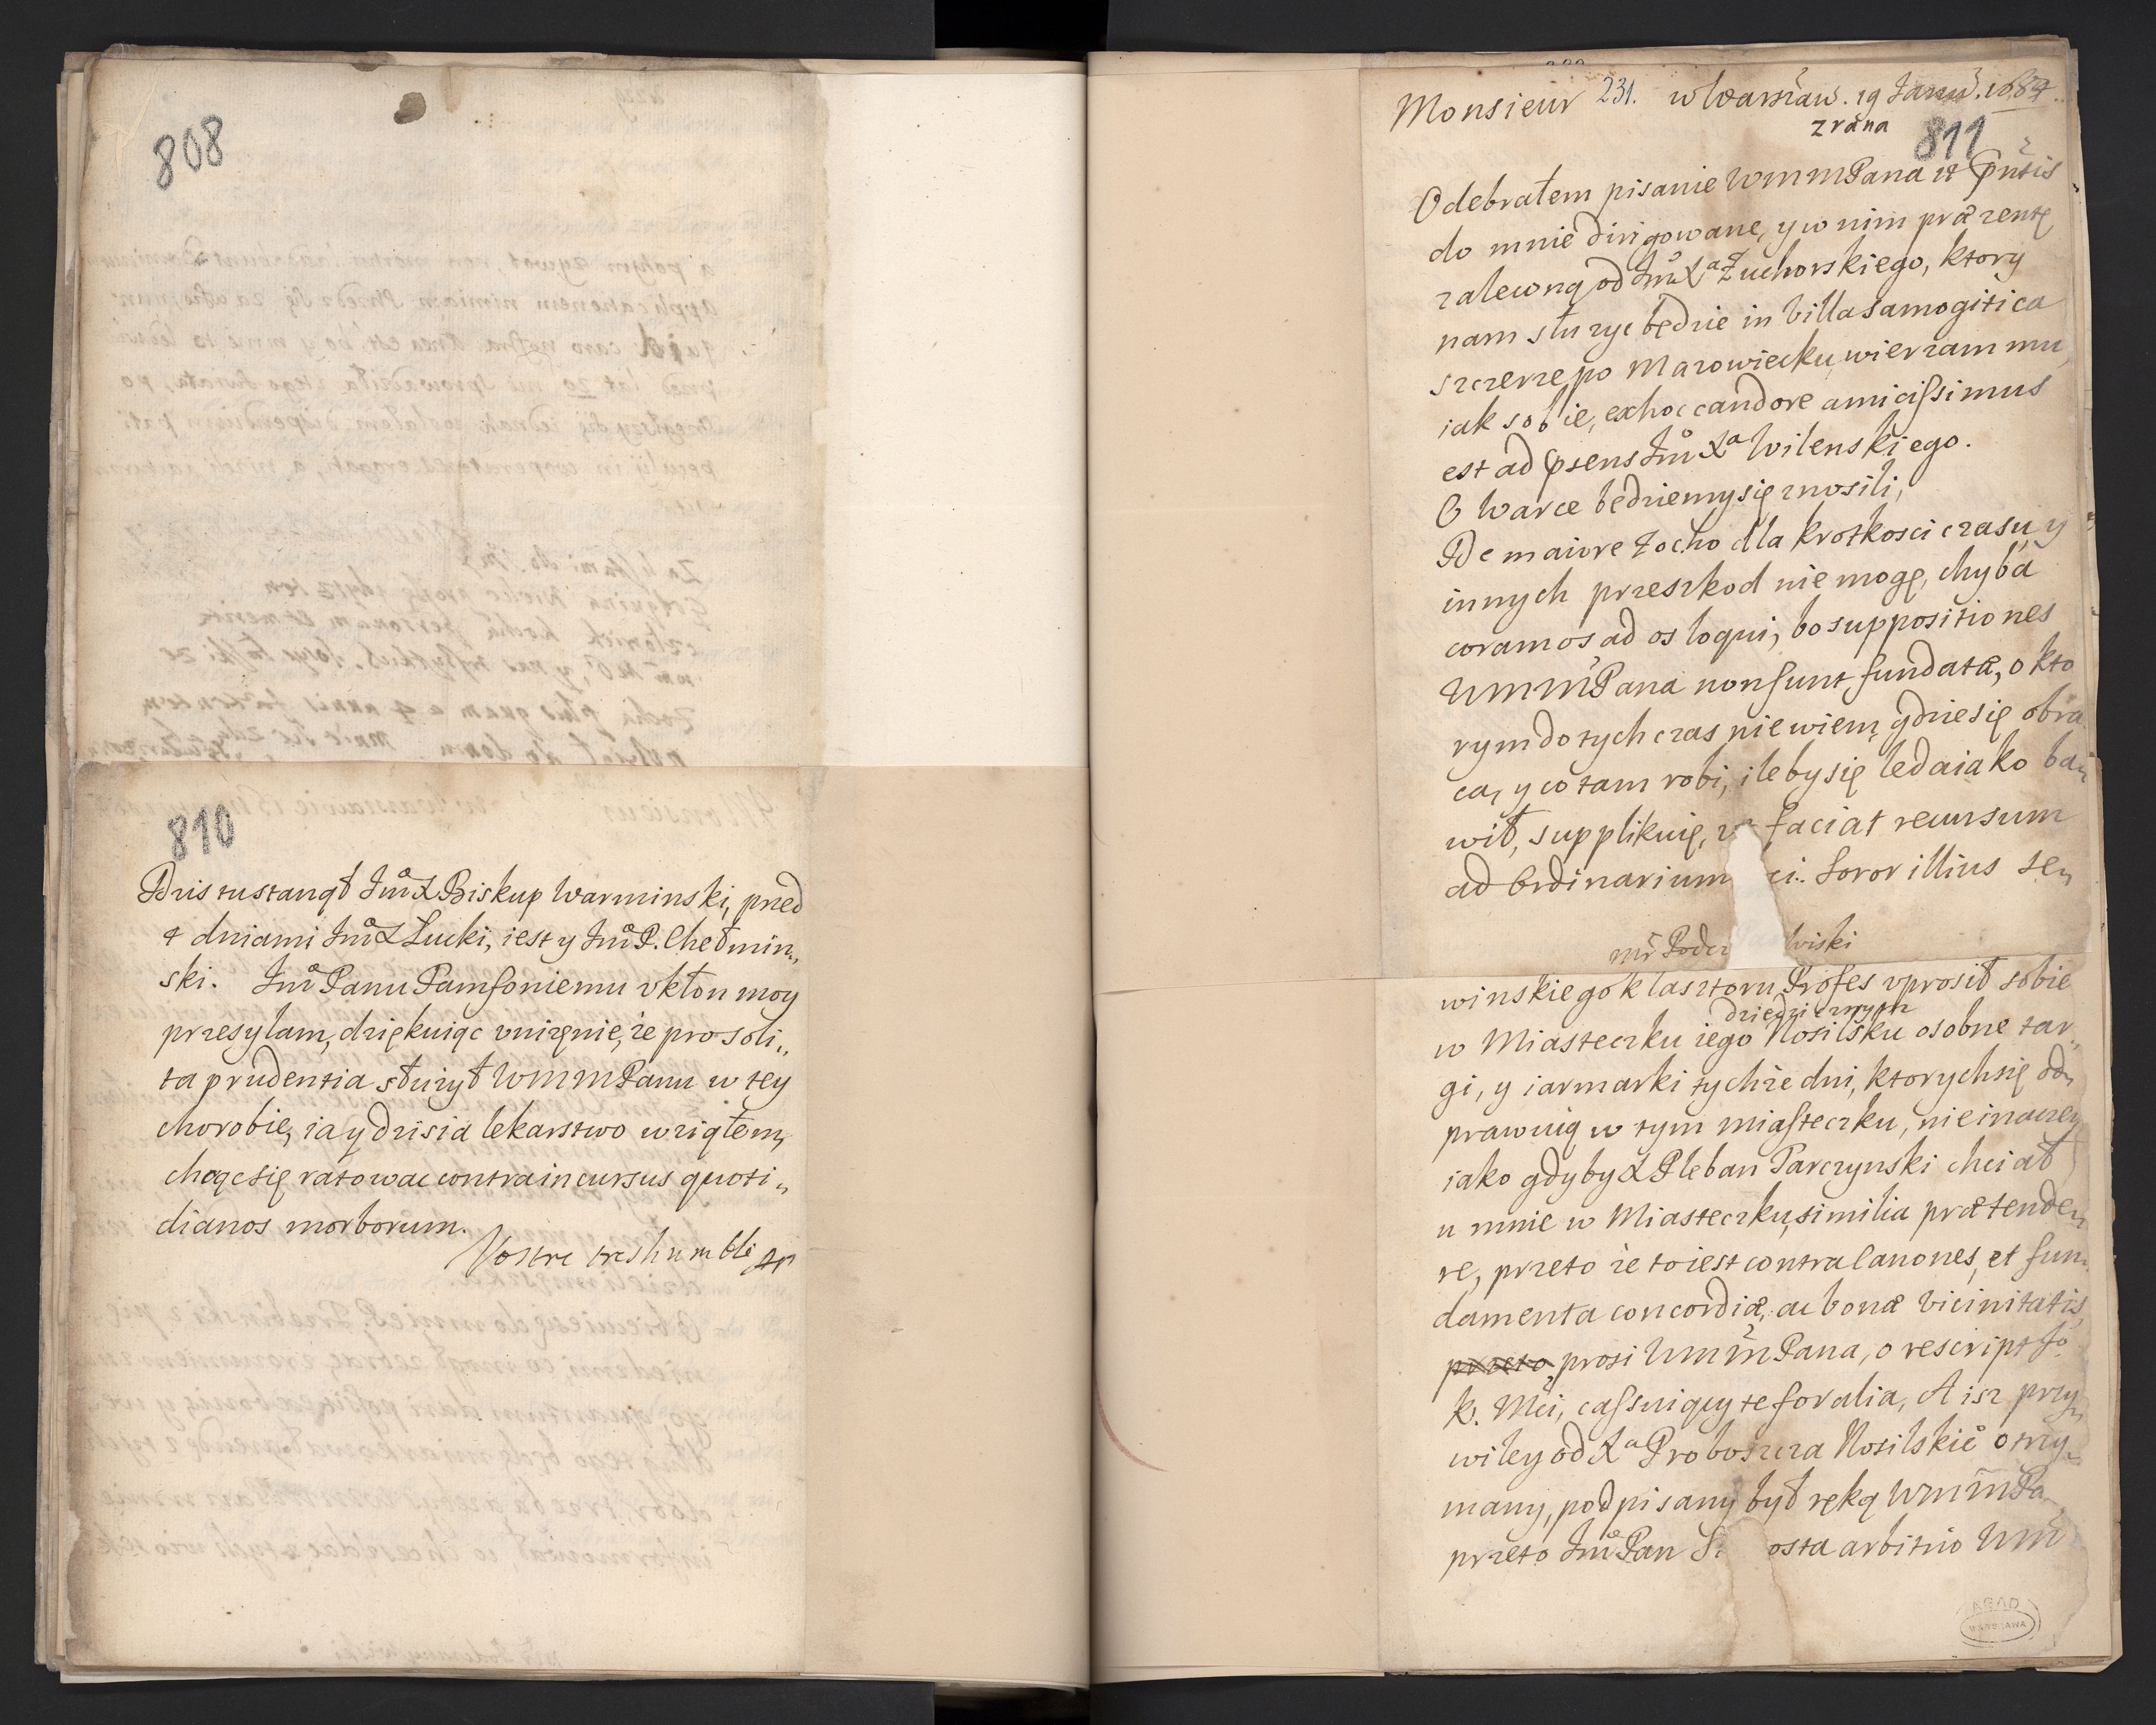 808
810
Dzis tu stanął Jm̊X Biskup Warminski, pred
4 dniami Jm̊X Łucki, iest y Jm̊P. Chełmin„
ski. Jm̊ Panu Pamfoniemu vkłon moy
przesyłam, dziękuiąc vnięnie, że pro soli„
ta prudentia służył WMMPanu w tey
chorobie, ia y dzisia lekarstwo wziąłem,
chcąc się ratowac contra incursus quoti„
dianos morborum.
Vostre tres humble
Monsieur 231. w Warszaw. 19 Janu. 1684
zrana
811
Odebrałem pisanie WMMPana 18 p̄ntis
do mnie dirigowane, y w nim præzentę
zalewną od Jm̊Xa Żuchorskiego, ktory
nam służyc będzie in Villa Samogitica
szczerze po Mazowiecku, wierzam mu,
iak sobie, ex hoc candore amicissimus
est ad p̄sens Jm̊Xa Wilenskiego.
O Warce będziemy się znosili,
De maiore Zocho dla krotkosci czasu, y
innych przeszkod nie mogę, chyba
coram os ad os loqui, bo suppositiones
WMMPana non sunt fundatæ, o kto
rym dotychczas nie wiem, gdzie się obra
ca, y co tam robi, ile by się ledaiako ba„
wił, supplikuię, faciat recursum
ad Ordinarium ci. Soror illius Se„
wiski
winskiego klasztoru Profes vprosił sobie
dziedzicznym
w Miasteczku iego Nosilsku osobne tar„
gi, y iarmarki tychże dni, ktorych się od„
prawuią w tym miasteczku, nie inaczey
iako gdyby X Pleban Parczynski chciał
u mnie w Miasteczku, similia prætende„
re, przeto że to iest contra Canones, et fun„
damenta concordiæ, ac bonæ Vicinitatis,
przeto, prosi WMMPana, o rescript Jo
K. Mći, cassuiący te foralia, A isz przy„
wiley od Xa Proboszcza Nosilskie̊ otrzy„
many, podpisany był ręką WMMPa
przeto Jm̊ Pan S osta arbitrio WM
AGAD
WARSZAWA